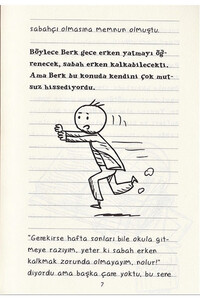 sabahçı olmasına memnun olmuştu.
Böylece Berk gece erken yatmayı öğ-
renecek, sabah erken kalkabilecekti.
Ama Berk bu konuda kendini çok mut-
suz hissediyordu.
"Gerekirse hafta sonları bile okula git-
meye razıyım, yeter ki sabah erken
kalkmak zorunda olmayayım, nolur!"
diyordu ama başka çare yoktu, bu sene
7